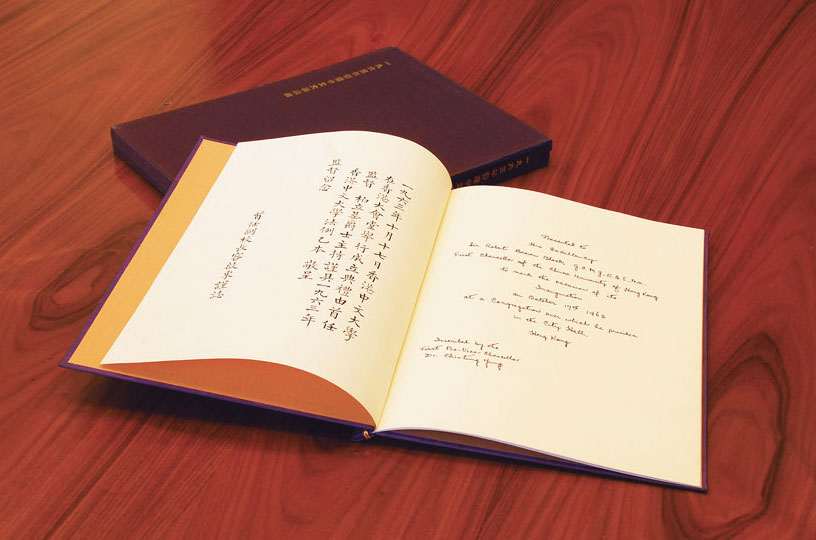 一九六三年十月十七日香港中文大學
在香港大會堂舉行成立典禮由首任
監督 柏立基爵士主持謹具一九六三年
香港中文大學法例乙本 敬呈
監督留念
首任副校長容啟東謹誌
Presented to
His Excellency
Sir Robert Brown Black,
First Chancellor of the Chinese University of Hong Kong
to mark the occasion of its
Inauguration
on October 17th 1963
at a Congregation over which he presides
in the City Hall
Hong Kong
by the
First Pro-Vice-Chancellor
Dr. Yung